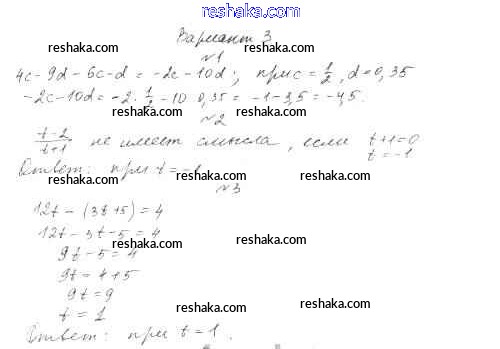 www.reshaka.com
Вариант 3
reshaka.com reshaka.com
№1
4c-9d-6c-d = -2c-10d; при c = 1/2, d = 0,35
reshaka.com reshaka.com
-2c-10d = -2·1/2-10 0,35 = -1-3,5 = -4,5.
№2
reshaka.com reshaka.com
t-2/t+1 не имеет смысла, если t+1=0
t=-1
Ответ: при t=-1
reshaka.com reshaka.com
№3
12t-(3t+5)=4
reshaka.com
12t-3t-5=4
reshaka.com
9t-5=4
9t=4+5
reshaka.com
9t=9
t=1
reshaka.com
Ответ: при t=1.
reshaka.com